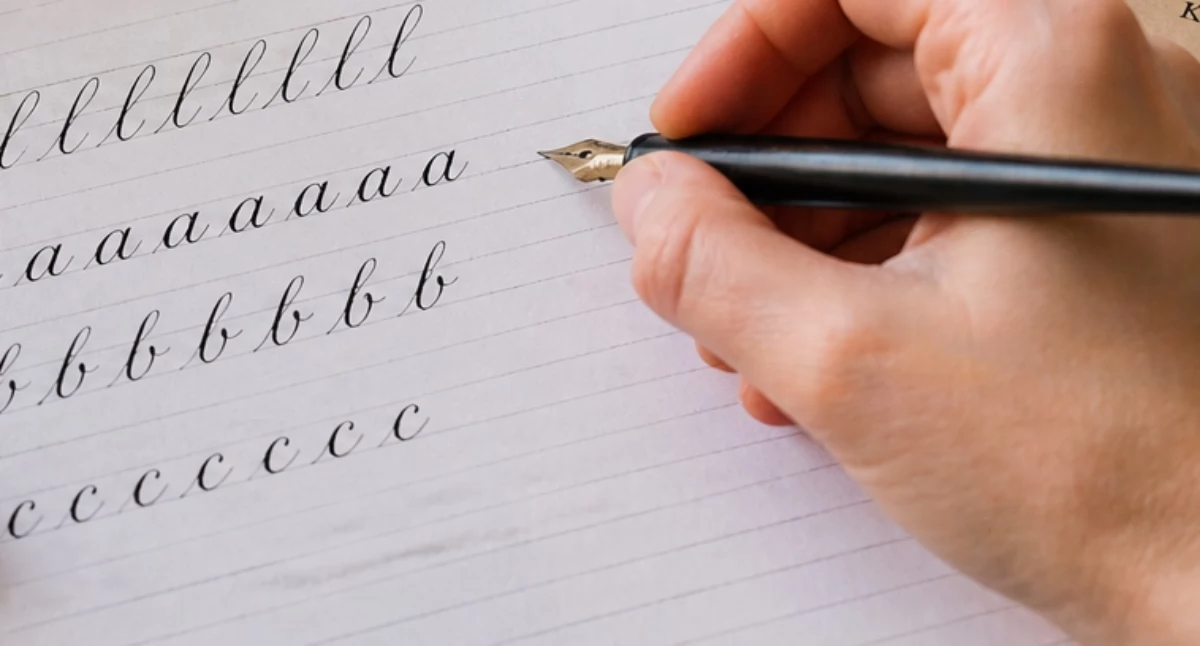 K
l l l l l l l l
a a a a a a a
b b b b b b b
c c c c c c c